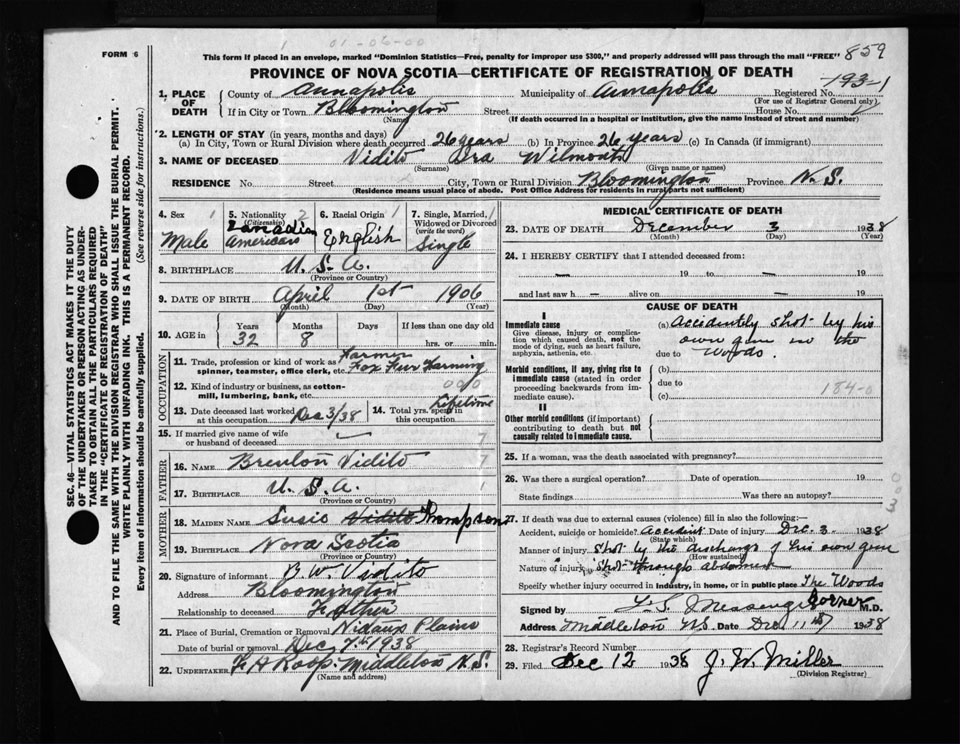 FORM 6
01-06-00
This form if placed in an envelope, marked "Dominion Statistics—Free, penalty for improper use $300," and properly addressed will pass through the mail "FREE" 859
PROVINCE OF NOVA SCOTIA—CERTIFICATE OF REGISTRATION OF DEATH
193-1
1. PLACE OF DEATH County of Annapolis Municipality of Annapolis Registered No.
(For use of Registrar General only)
If in City or Town Bloomington Street House No.
(Name) (If death occurred in a hospital or institution, give the name instead of street and number)
2. LENGTH OF STAY (in years, months and days)
(a) In City, Town or Rural Division where death occurred 26 years (b) In Province 26 years (c) In Canada (if immigrant)
3. NAME OF DECEASED Vidito Ora Wilmouth
(Surname) (Given name or names)
RESIDENCE No. Street City, Town or Rural Division Bloomington Province N. S.
(Residence means usual place of abode. Post Office Address for residents in rural parts not sufficient)
4. Sex 1 Male
5. Nationality 2 (Citizenship) Canadian American
6. Racial Origin 1 English
7. Single, Married, Widowed or Divorced (write the word) 1 Single
8. BIRTHPLACE U. S. A.
(Province or Country)
9. DATE OF BIRTH April 1st 1906
(Month) (Day) (Year)
10. AGE in Years Months Days If less than one day old
32 8 hrs. or min.
OCCUPATION
11. Trade, profession or kind of work as spinner, teamster, office clerk, etc. Farmer Fox Fur Farming
12. Kind of industry or business, as cotton-mill, lumbering, bank, etc. 090
13. Date deceased last worked at this occupation Dec 3/38
14. Total yrs. spent in this occupation Lifetime
15. If married give name of wife or husband of deceased
FATHER
16. NAME Brenton Vidito
17. BIRTHPLACE U. S. A.
(Province or Country)
MOTHER
18. MAIDEN NAME Susie Vidito Thompson
19. BIRTHPLACE Nova Scotia
(Province or Country)
20. Signature of informant B. W. Vidito
Address Bloomington
Relationship to deceased Father
21. Place of Burial, Cremation or Removal Nictaux Plains
Date of burial or removal Dec 7th 1938
22. UNDERTAKER F A Roop. Middleton N. S.
(Name and address)
MEDICAL CERTIFICATE OF DEATH
23. DATE OF DEATH December 3 1938
(Month) (Day) (Year)
24. I HEREBY CERTIFY that I attended deceased from:
— 19 to — 19
and last saw h — alive on — 19
CAUSE OF DEATH
I
Immediate cause
Give disease, injury or complication which caused death, not the mode of dying, such as heart failure, asphyxia, asthenia, etc.
(a) Accidently shot by his
own gun in the
due to Woods.
Morbid conditions, if any, giving rise to immediate cause (stated in order proceeding backwards from immediate cause).
(b)
due to
184-0
(c)
II
Other morbid conditions (if important) contributing to death but not causally related to immediate cause.
25. If a woman, was the death associated with pregnancy?
26. Was there a surgical operation? Date of operation 19
State findings Was there an autopsy?
27. If death was due to external causes (violence) fill in also the following:—
Accident, suicide or homicide? Accident Date of injury Dec. 3 1938
(State which)
Manner of injury Shot by the discharge of his own gun
(How sustained)
Nature of injury Shot through abdomen
Specify whether injury occurred in industry, in home, or in public place The Woods
Signed by L. S. Messenger Corner M.D.
Address Middleton NS. Date Dec 11th 1938
28. Registrar's Record Number
29. Filed Dec 12 1938 J. W. Miller
(Division Registrar)
SEC. 46—VITAL STATISTICS ACT MAKES IT THE DUTY
OF THE UNDERTAKER OR PERSON ACTING AS UNDER-
TAKER TO OBTAIN ALL THE PARTICULARS REQUIRED
IN THE "CERTIFICATE OF REGISTRATION OF DEATH"
AND TO FILE THE SAME WITH THE DIVISION REGISTRAR WHO SHALL ISSUE THE BURIAL PERMIT.
WRITE PLAINLY WITH UNFADING INK. THIS IS A PERMANENT RECORD.
Every item of information should be carefully supplied. (See reverse side for instructions.)